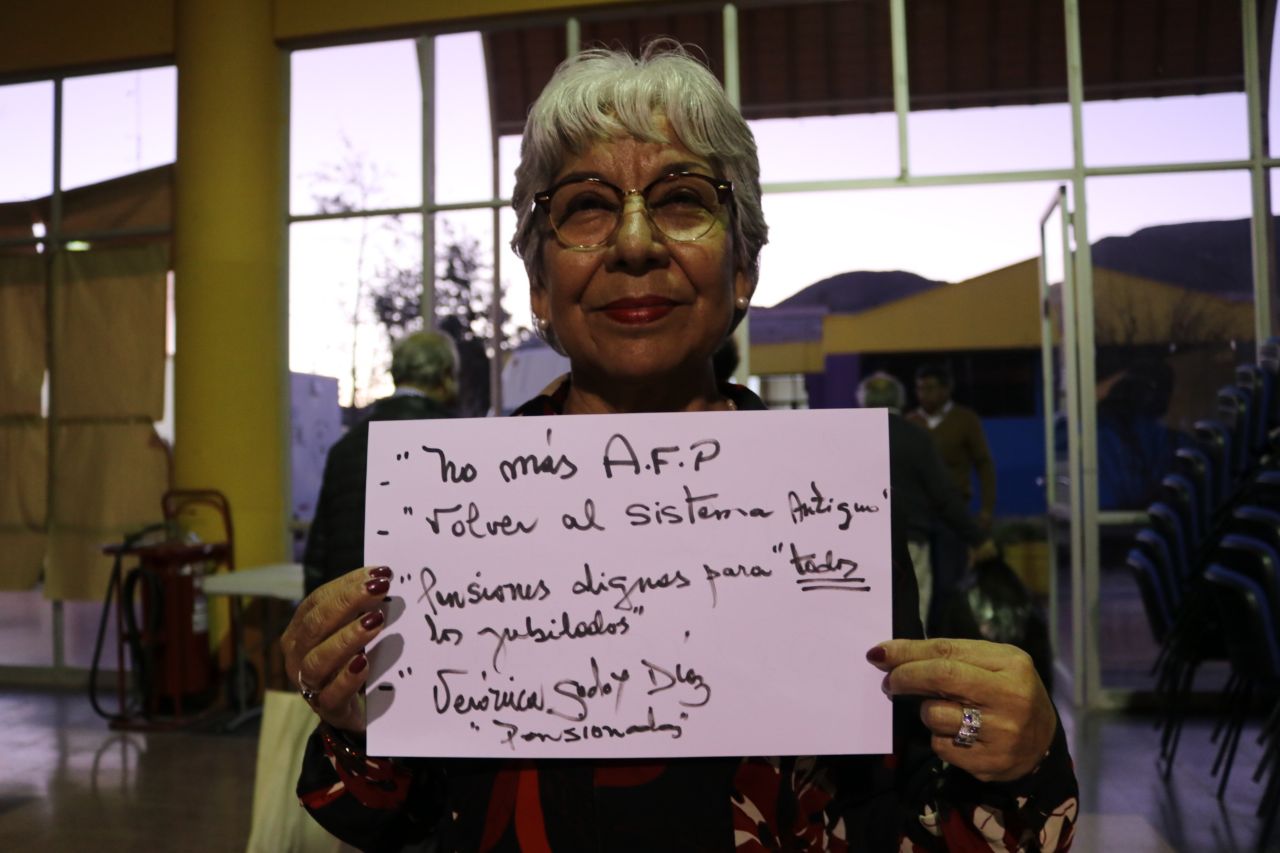 - "No más A.F.P
- "Volver al sistema Antiguo"
- "Pensiones dignas para "todos
los jubilados"
- " Verónica Godoy Díaz
"Pensionada"